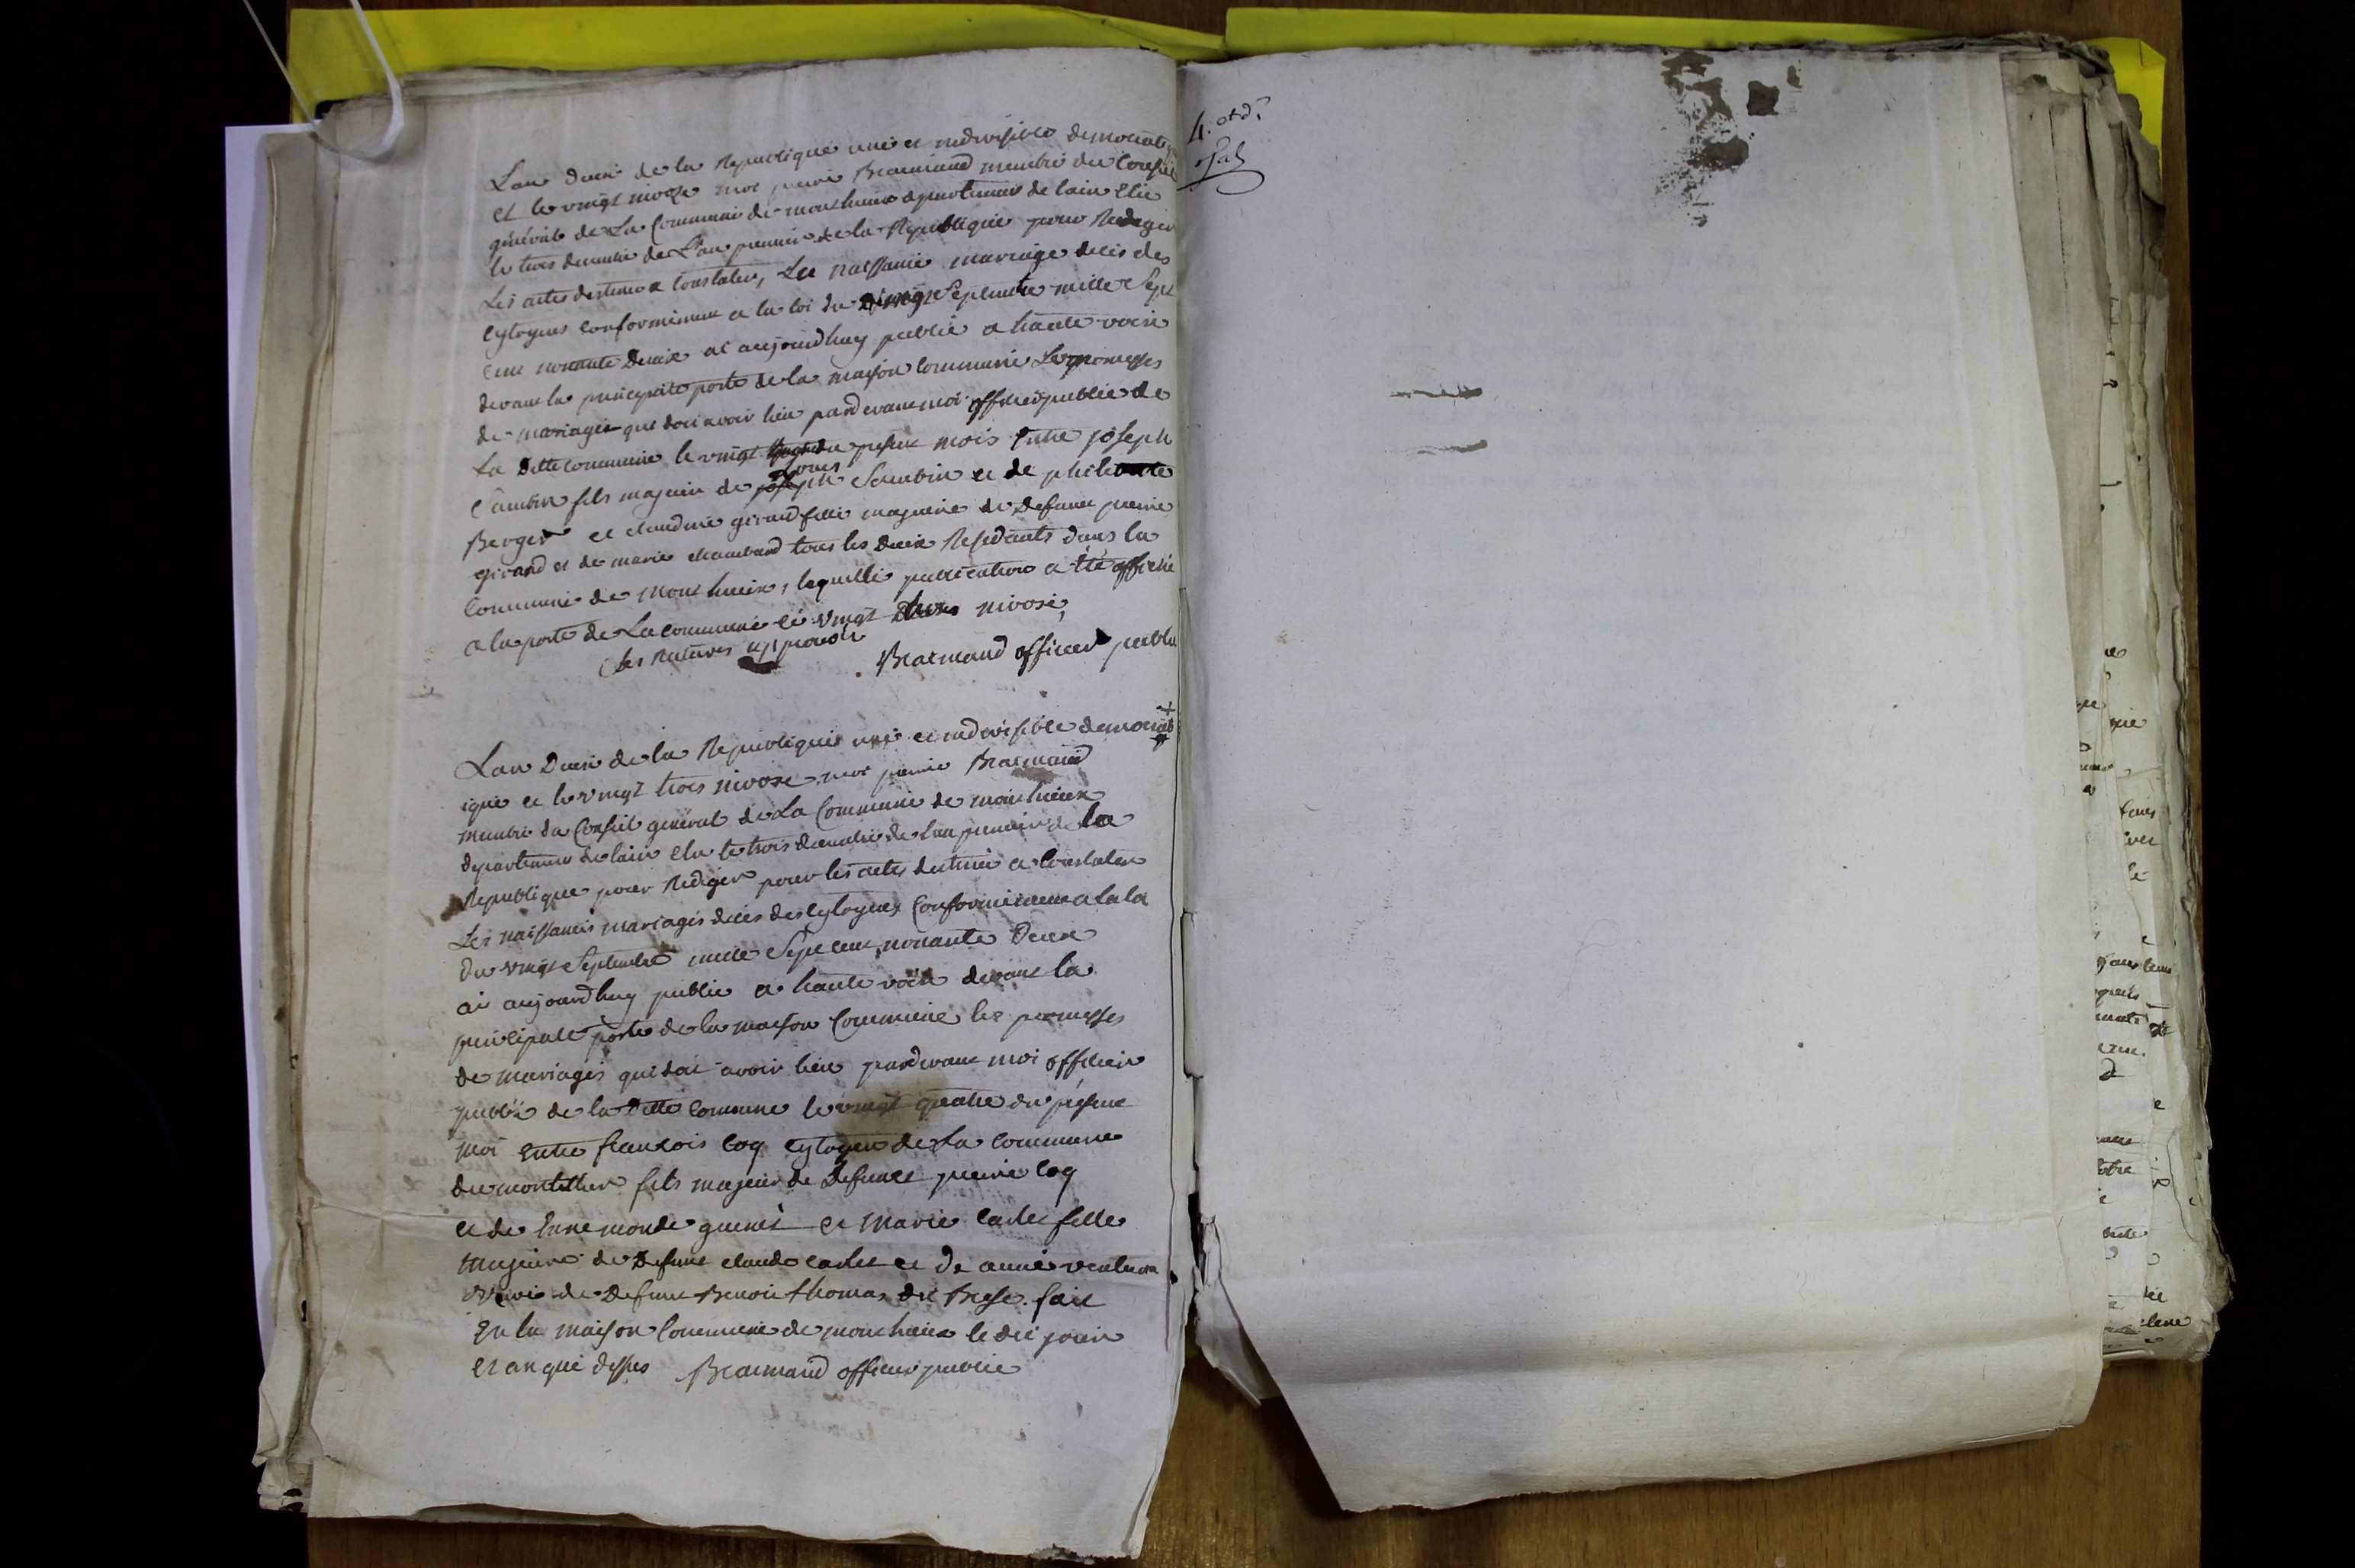 Lan deux de la Republique une et indivisible democrat
et le vingt nivose moi pierre Bramand membre du Conseil
général de La Commune de monthieux departement de lain Elu
le trois decembre de Lan premier de la Republique pour Rediger
Les actes destines a Constater, Les naissance mariage deces des
Cytoyens Conformement a la loi du vingt Septembre mille Sept
Cent nonante Deux ai aujourdhuy publié a haute voix
devant la principale porte de la maison Commune Les promesses
de mariage que doit avoir lieu pardevant moi officier public de
La Ditte Commune le vingt du present mois Entre joseph
Sambin fils majeur de Louis Sambin et de
Berger et claudine girand fille majeure de Defunt pierre
girand et de marie chambard tous les Deux Residants dans la
Commune de Monthieux, laquelle publication a été affiché
a la porte de La commune Le vingt nivose,
les Ratures approuvé
Bramand officier public
Lan Deux de la Republique une et indivisible democrat
ique et le vingt trois nivose moi pierre Bramand
membre du Conseil general de La Commune de monthieux
departement de lain Elu le trois decembre de lan premier de la
Republique pour Rediger pour les actes destiné a Constater
Les naissances mariages deces des Cytoyens Conformement a la loi
du vingt Septembre mille Sept cent nonante Deux
ai aujourdhuy publié a haute voix devant la
principale porte de la maison Commune les promesses
de mariages qui doit avoir lieu pardevant moi officier
public de la Ditte Commune le vingt quatre du présent
moi Entre francois Coq Cytoyen de La Commune
du montellier fils majeur de Defunct pierre Coq
et de Ennemonde et Marie Carlet fille
majeure de Defunt claude carlet et de anne
veuve de Defunt Benoit thomas dit fait
En la maison Commune de monthieux le dit jour
et an que desus Bramand officier public
4.